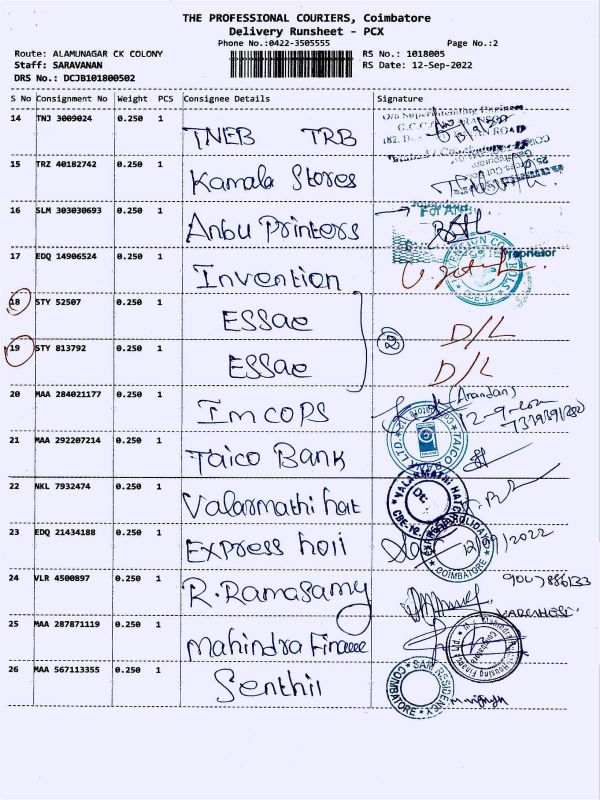 THE PROFESSIONAL COURIERS, Coimbatore
Delivery Runsheet - PCX
Phone No.:0422-3505555 Page No.:2
Route: ALAMUNAGAR CK COLONY RS No.: 1018005
Staff: SARAVANAN RS Date: 12-Sep-2022
DRS No.: DCJB101800502
S No Consignment No Weight PCS Consignee Details Signature
14 TNJ 3009024 0.250 1 TNEB TRB
15 TRZ 40182742 0.250 1 Kamala Stores
16 SLM 303030693 0.250 1 Anbu Printers
Proprietor
17 EDQ 14906524 0.250 1 Invention
18 STY 52507 0.250 1 ESSae D/L
19 STY 813792 0.250 1 ESSae D/L
20 MAA 284021177 0.250 1 Imcops (Anandan)
21 MAA 292207214 0.250 1 Taico Bank
22 NKL 7932474 0.250 1 Valarmathi hat
VALARMATHI HATC
CBE-12
23 EDQ 21434188 0.250 1 Express holi 12/9/2022
COIMBATORE
24 VLR 4500897 0.250 1 R. Ramasamy
25 MAA 287871119 0.250 1 Mahindra Finance
26 MAA 567113355 0.250 1 Senthil
SAM RESIDENCY
COIMBATORE